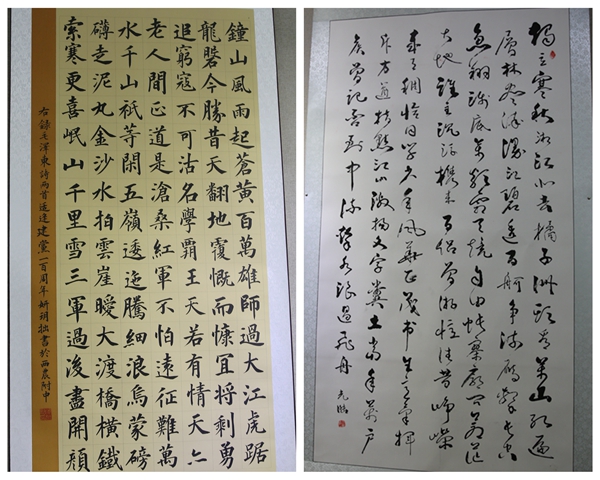 鐘山風雨起蒼黃百萬雄師過大江虎踞
龍磐今勝昔天翻地覆慨而慷宜將剩勇
追窮寇不可沽名學霸王天若有情天亦
老人間正道是滄桑紅軍不怕遠征難萬
水千山祇等閑五嶺逶迤騰細浪烏蒙磅
礴走泥丸金沙水拍雲崖曖大渡橋橫鐵
索寒更喜岷山千里雪三軍過後盡開顏
右錄毛澤東詩兩首適逢建黨一百周年妍玥拙書於西農附中
獨立寒秋湘江北去橘子洲頭看萬山紅遍
層林盡染漫江碧透百舸爭流鷹擊長空
魚翔淺底萬類霜天競自由悵寥廓問蒼茫
大地誰主沉浮攜來百侶曾游憶往昔崢嶸
歲月稠恰同學少年風華正茂書生意氣揮
斥方遒指點江山激揚文字糞土當年萬戶
侯曾記否到中流擊水浪遏飛舟